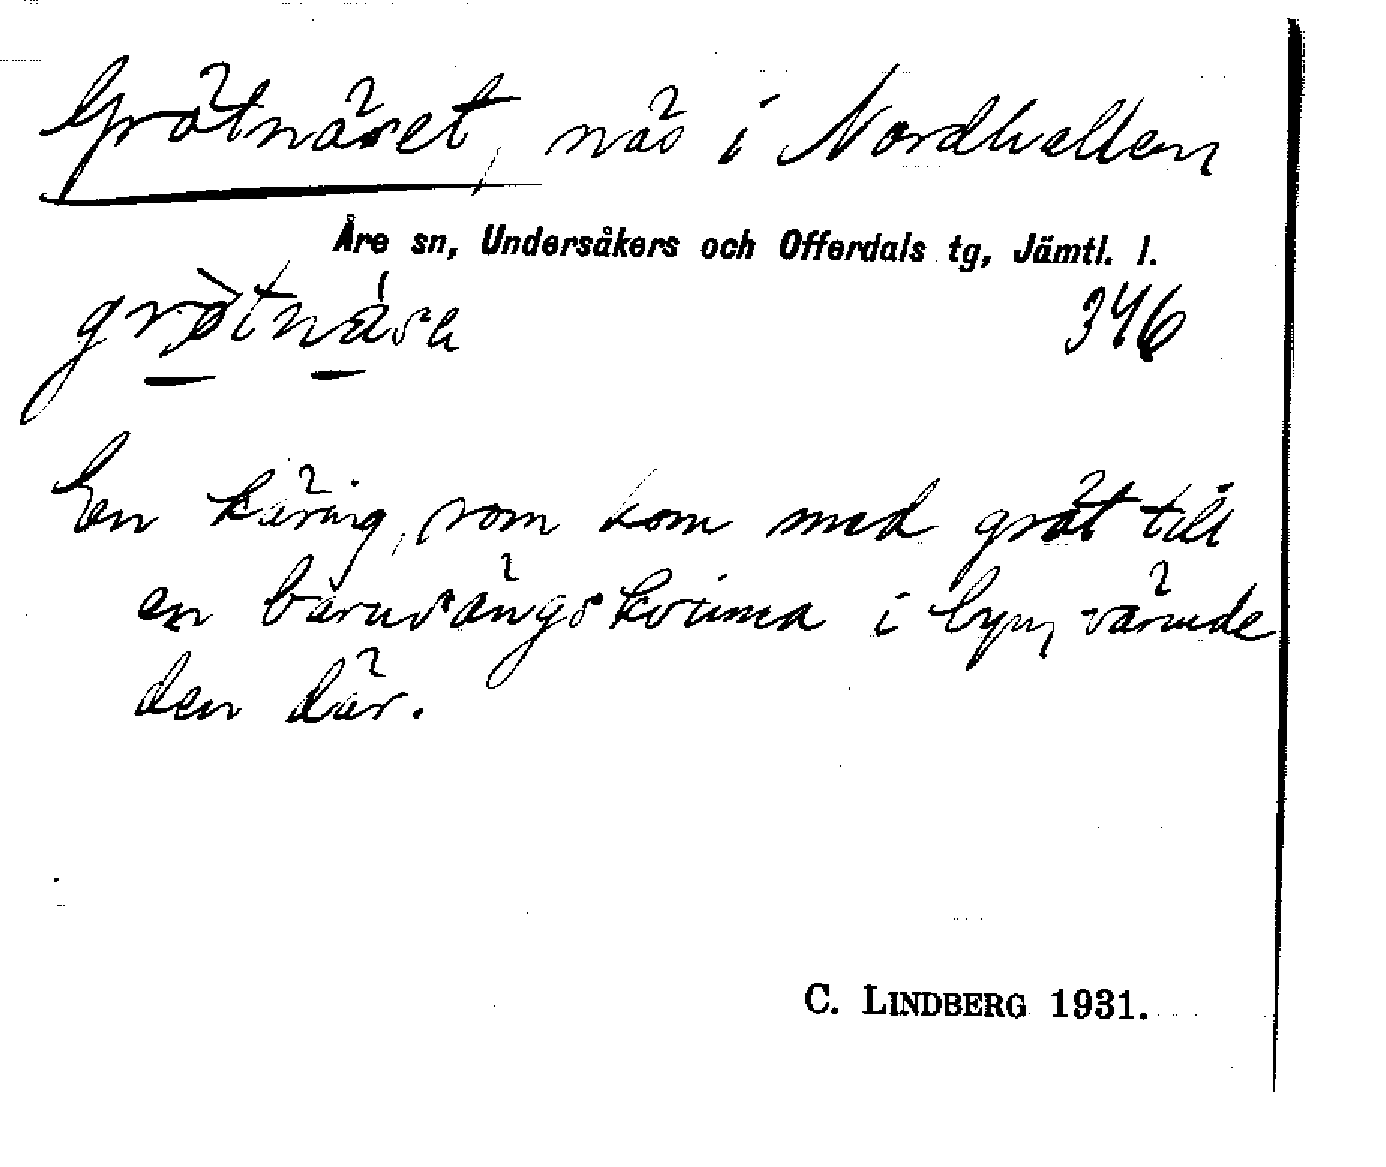 Grötnäset, näs i Nordhallen
Åre sn, Undersåkers och Offerdals tg, Jämtl. l.
grötnäsa 346
En käring, som kom med gröt till
en barnsängskvinna i byn, värmde
den där.
C. LINDBERG 1931.